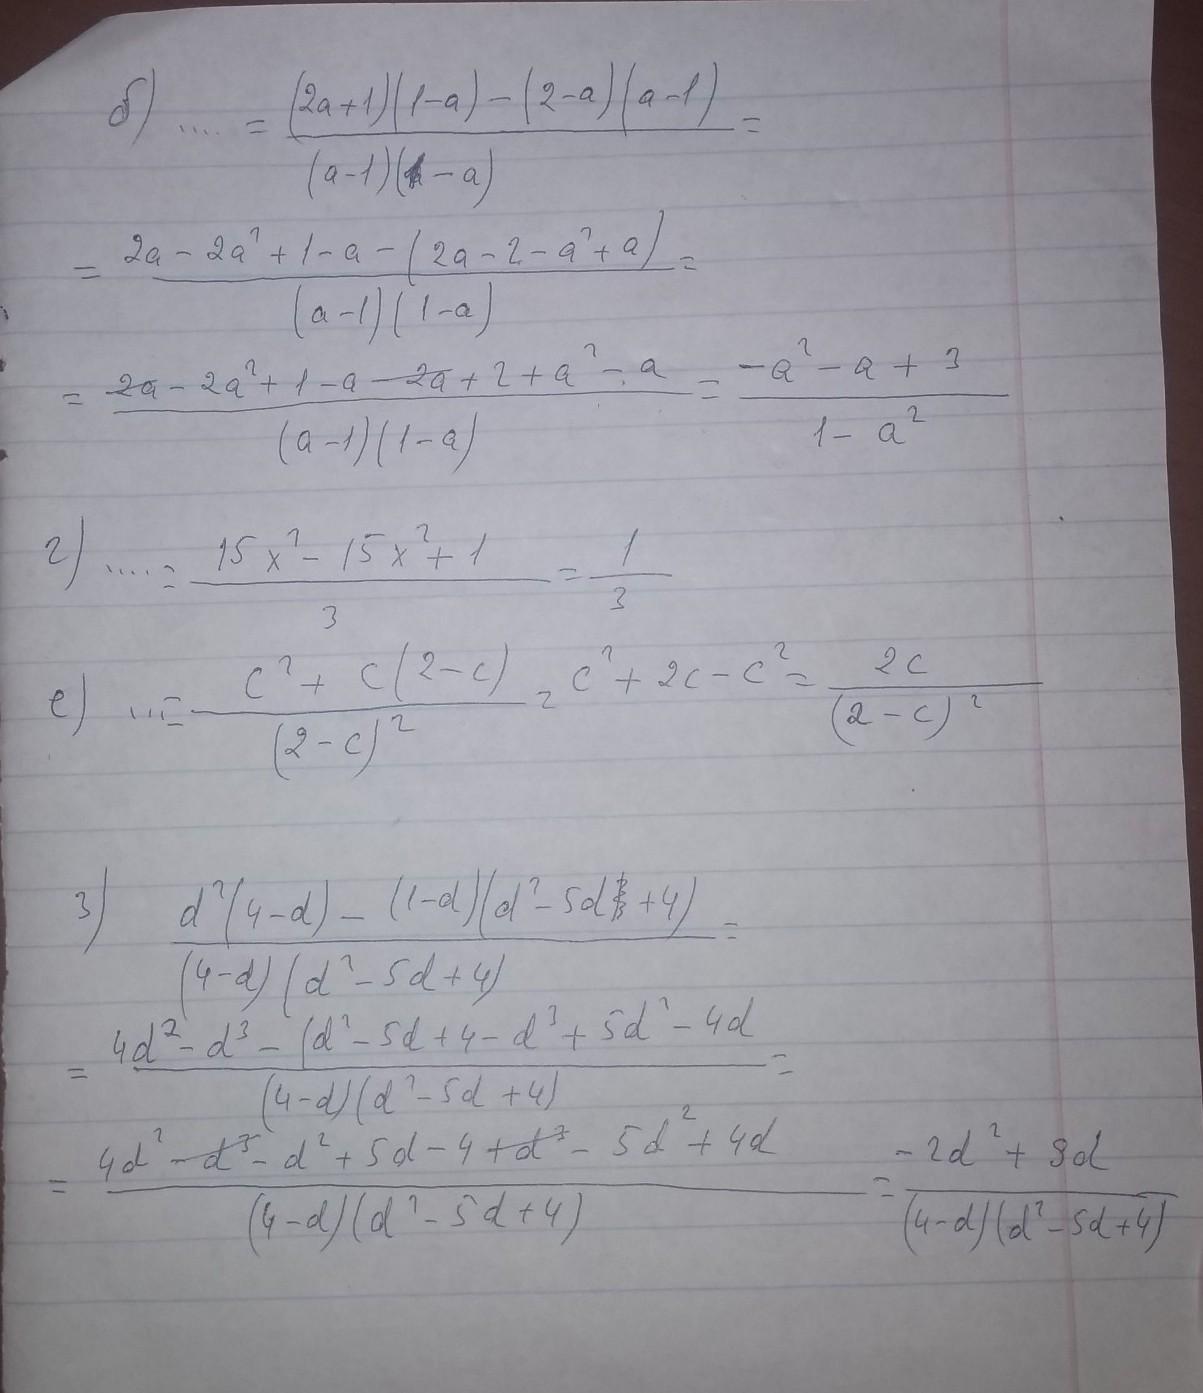 б) .... = ((2a+1)(1-a) - (2-a)(a-1))/((a-1)(1-a)) =
= (2a - 2a² + 1 - a - (2a - 2 - a² + a))/((a-1)(1-a)) =
= (2a - 2a² + 1 - a - 2a + 2 + a² - a)/((a-1)(1-a)) = (-a² - a + 3)/(1 - a²)
г) .... = (15x² - 15x² + 1)/3 = 1/3
е) ... = (c² + c(2-c))/((2-c)²) = c² + 2c - c² = 2c/((2-c)²)
з) (d²(4-d) - (1-d)(d² - 5d + 4))/((4-d)(d² - 5d + 4)) =
= (4d² - d³ - (d² - 5d + 4 - d³ + 5d² - 4d)/((4-d)(d² - 5d + 4)) =
= (4d² - d³ - d² + 5d - 4 + d³ - 5d² + 4d)/((4-d)(d² - 5d + 4)) = (-2d² + 9d)/((4-d)(d² - 5d + 4))